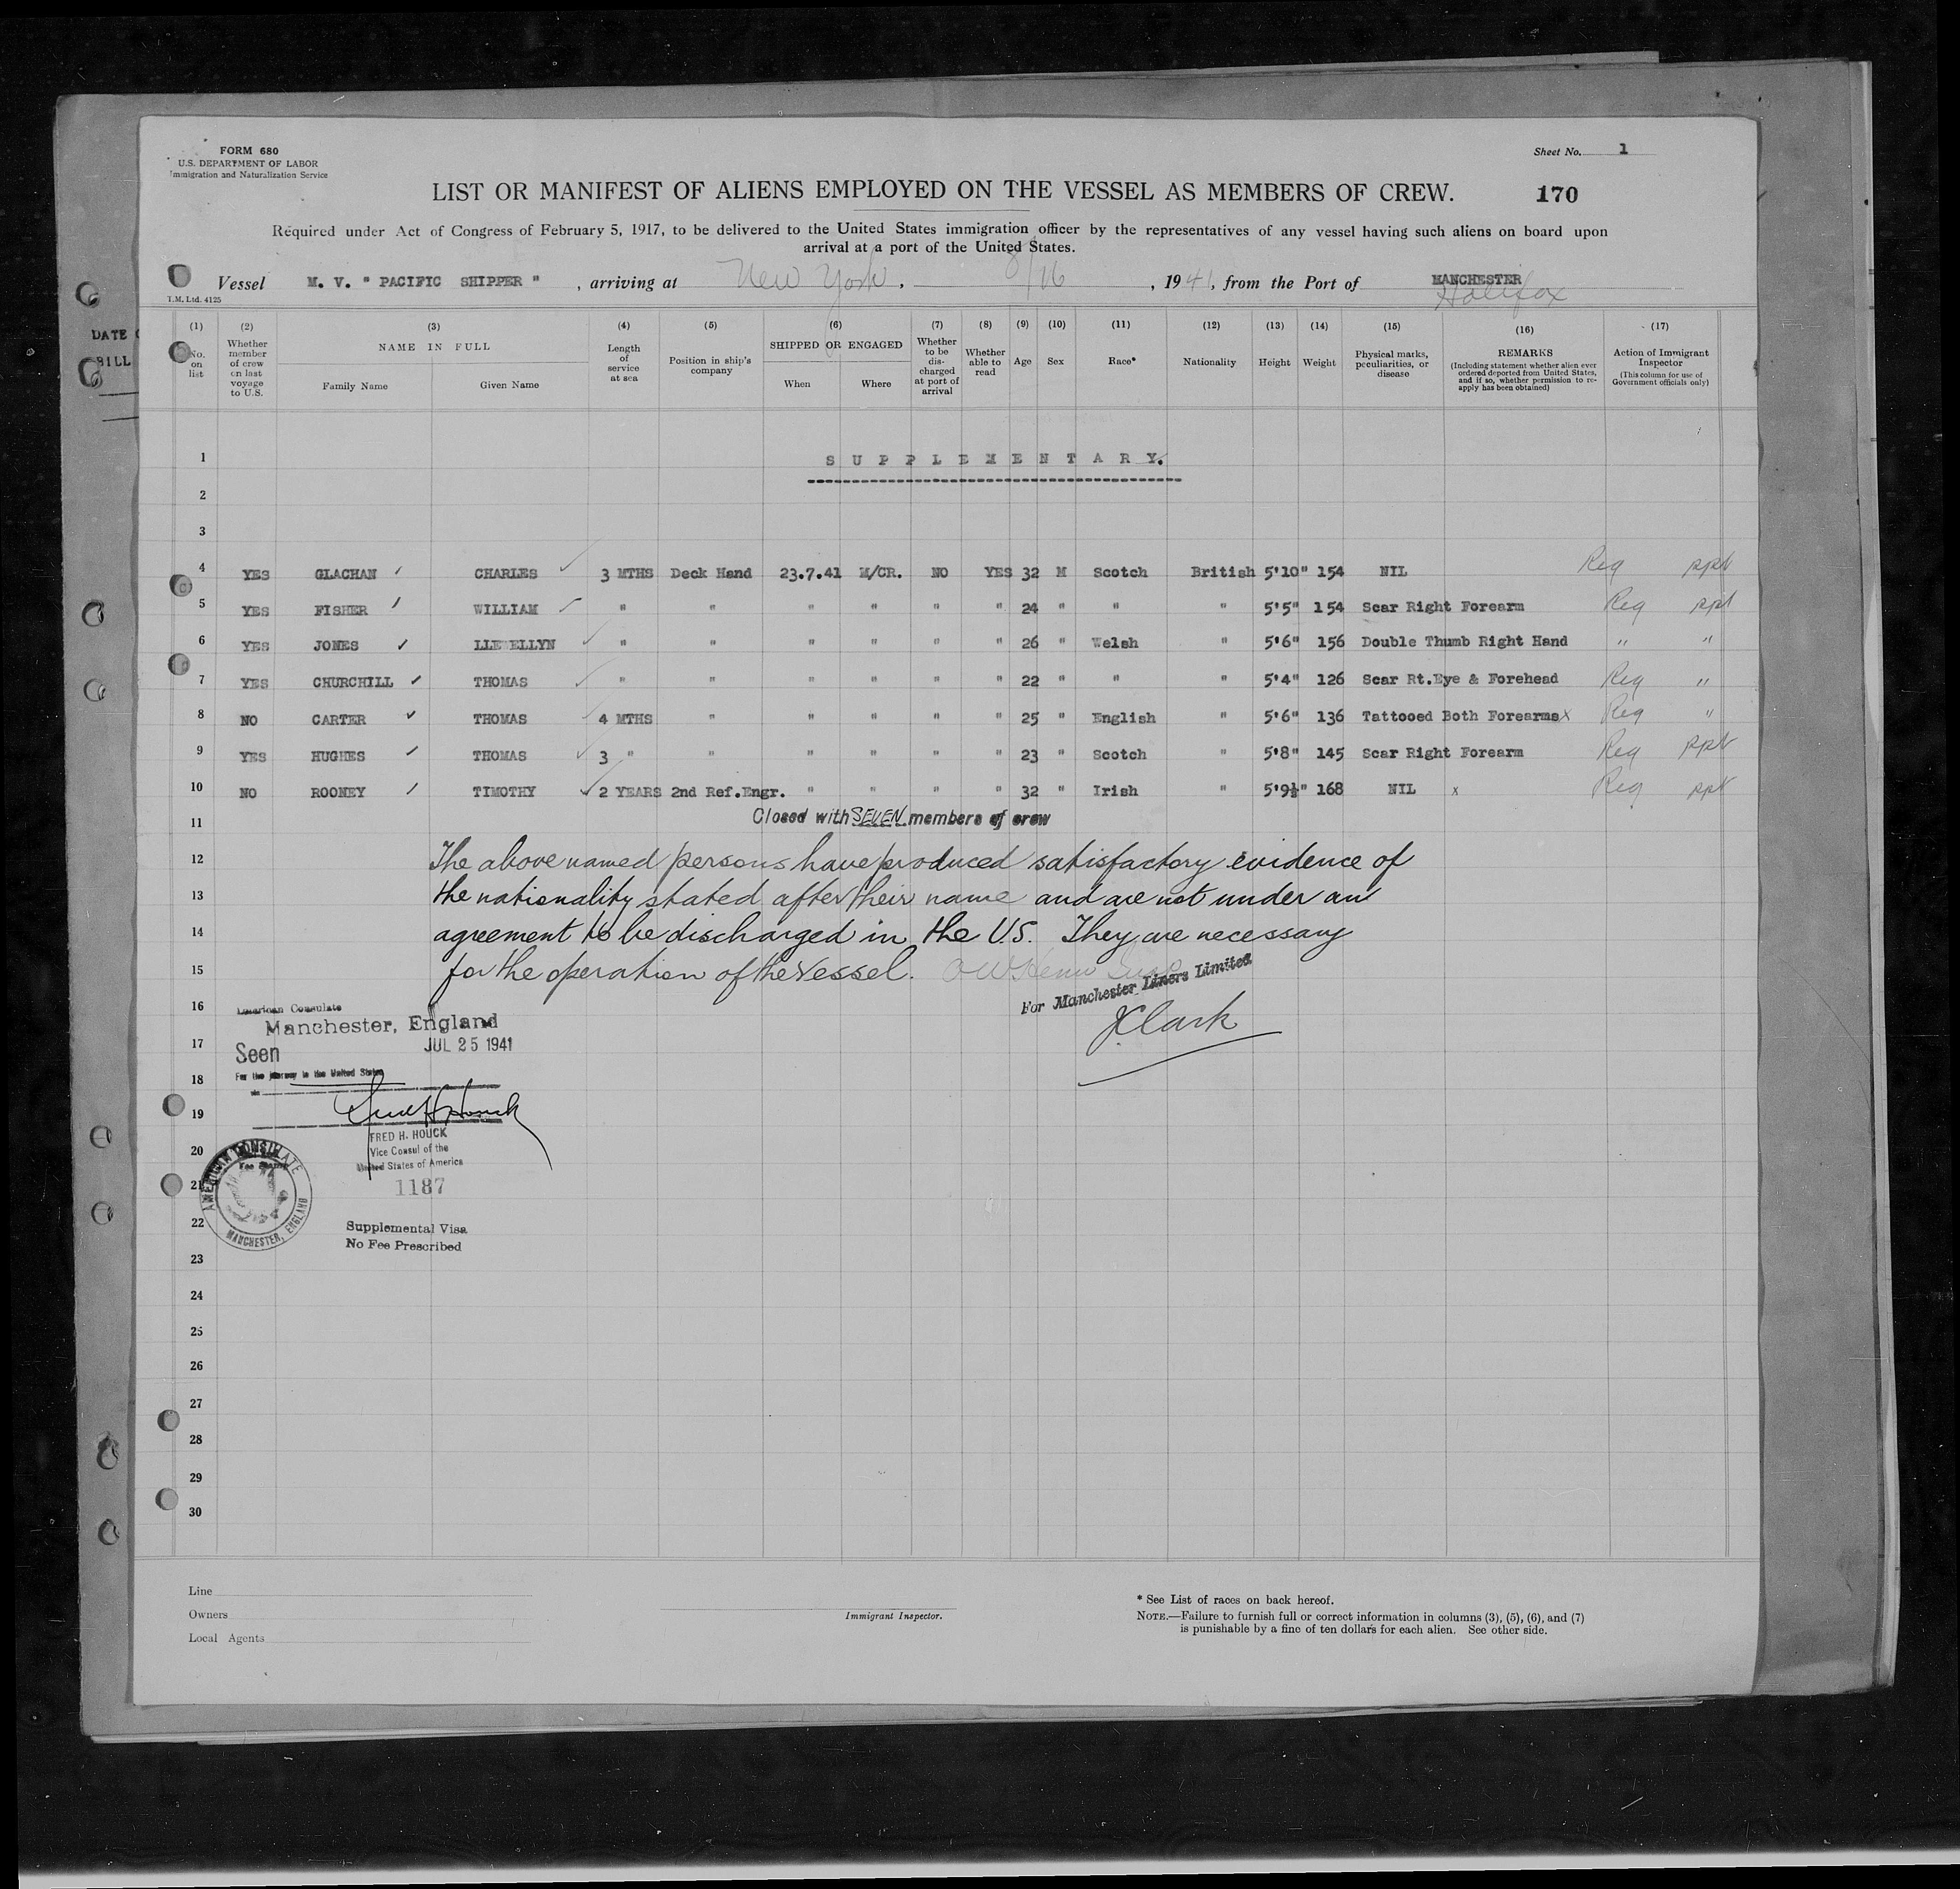 FORM 680
U.S. DEPARTMENT OF LABOR
Immigration and Naturalization Service
Sheet No. 1
LIST OR MANIFEST OF ALIENS EMPLOYED ON THE VESSEL AS MEMBERS OF CREW.
170
Required under Act of Congress of February 5, 1917, to be delivered to the United States immigration officer by the representatives of any vessel having such aliens on board upon
arrival at a port of the United States.
Vessel M. V. " PACIFIC SHIPPER " , arriving at New York , 8/16 , 1941, from the Port of MANCHESTER
Halifax
T.M. Ltd. 4125
DATE
BILL
(1) No. on list
(2) Whether member of crew on last voyage to U.S.
(3) NAME IN FULL Family Name Given Name
(4) Length of service at sea
(5) Position in ship's company
(6) SHIPPED OR ENGAGED When Where
(7) Whether to be discharged at port of arrival
(8) Whether able to read
(9) Age
(10) Sex
(11) Race*
(12) Nationality
(13) Height
(14) Weight
(15) Physical marks, peculiarities, or disease
(16) REMARKS (Including statement whether alien ever ordered deported from United States, and if so, whether permission to re-apply has been obtained)
(17) Action of Immigrant Inspector (This column for use of Government officials only)
1 SUPPLEMENTARY.
2
3
4 YES GLACHAN CHARLES 3 MTHS Deck Hand 23.7.41 M/CR. NO YES 32 M Scotch British 5'10" 154 NIL Reg ppt
5 YES FISHER WILLIAM " " " " " " 24 " " " 5'5" 154 Scar Right Forearm Reg ppt
6 YES JONES LLEWELLYN " " " " " " 26 " Welsh " 5'6" 156 Double Thumb Right Hand " "
7 YES CHURCHILL THOMAS " " " " " " 22 " " " 5'4" 126 Scar Rt.Eye & Forehead Reg "
8 NO CARTER THOMAS 4 MTHS " " " " " 25 " English " 5'6" 136 Tattooed Both Forearms x Reg "
9 YES HUGHES THOMAS 3 " " " " " " 23 " Scotch " 5'8" 145 Scar Right Forearm Reg ppt
10 NO ROONEY TIMOTHY 2 YEARS 2nd Ref.Engr. " " " " 32 " Irish " 5'9½" 168 NIL x Reg ppt
11 Closed with SEVEN members of crew
12 The above named persons have produced satisfactory evidence of
13 the nationality stated after their name and are not under an
14 agreement to be discharged in the U.S. They are necessary
15 for the operation of the Vessel.
For Manchester Liners Limited
J Clark
16 American Consulate
Manchester, England
17 Seen JUL 25 1941
For the journey to the United States
18 via
19
FRED H. HOUCK
20 Vice Consul of the
United States of America
21 1187
AMERICAN CONSULATE
Fee Stamp
MANCHESTER, ENGLAND
22 Supplemental Visa
No Fee Prescribed
23
24
25
26
27
28
29
30
Line
Owners
Local Agents
Immigrant Inspector.
* See List of races on back hereof.
NOTE.—Failure to furnish full or correct information in columns (3), (5), (6), and (7)
is punishable by a fine of ten dollars for each alien. See other side.